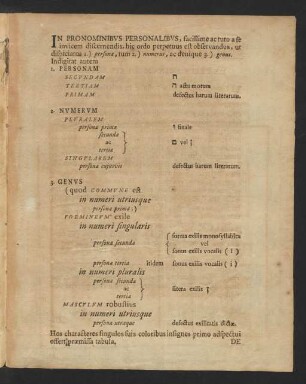 IN PRONOMINIBVS PERSONALIBVS, facillime ac tuto a se
invicem discernendis, hic ordo perpetuus est observandus, ut
dispiciatur 1.) persona, tum 2.) numerus, ac denique 3.) genus.
Indigitat autem
1. PERSONAM
SECVNDAM ת
TERTIAM ה
PRIMAM defectus harum literarum.
2. NUMERVM
PLVRALEM
persona prima finale
secunda
ac ם vel ן
tertia
SINGVLAREM
persona cujusvis defectus harum literarum.
3. GENVS
(quod COMMVNE est
in numeri utriusque
persona prima:)
FOEMINEVM exile
in numeri singularis
forma exilis monosyllabica
persona secunda vel
sonus exilis vocalis ( i )
persona tertia itidem sonus exilis vocalis ( i )
in numeri pluralis
persona secunda
ac litera exilis ן
tertia
MASCVLVM robustius
in numeri utriusque
persona utraque defectus exilitatis dictæ.
Hos characteres singulos suis coloribus insignes primo adspectui
præmissa tabula.
DE